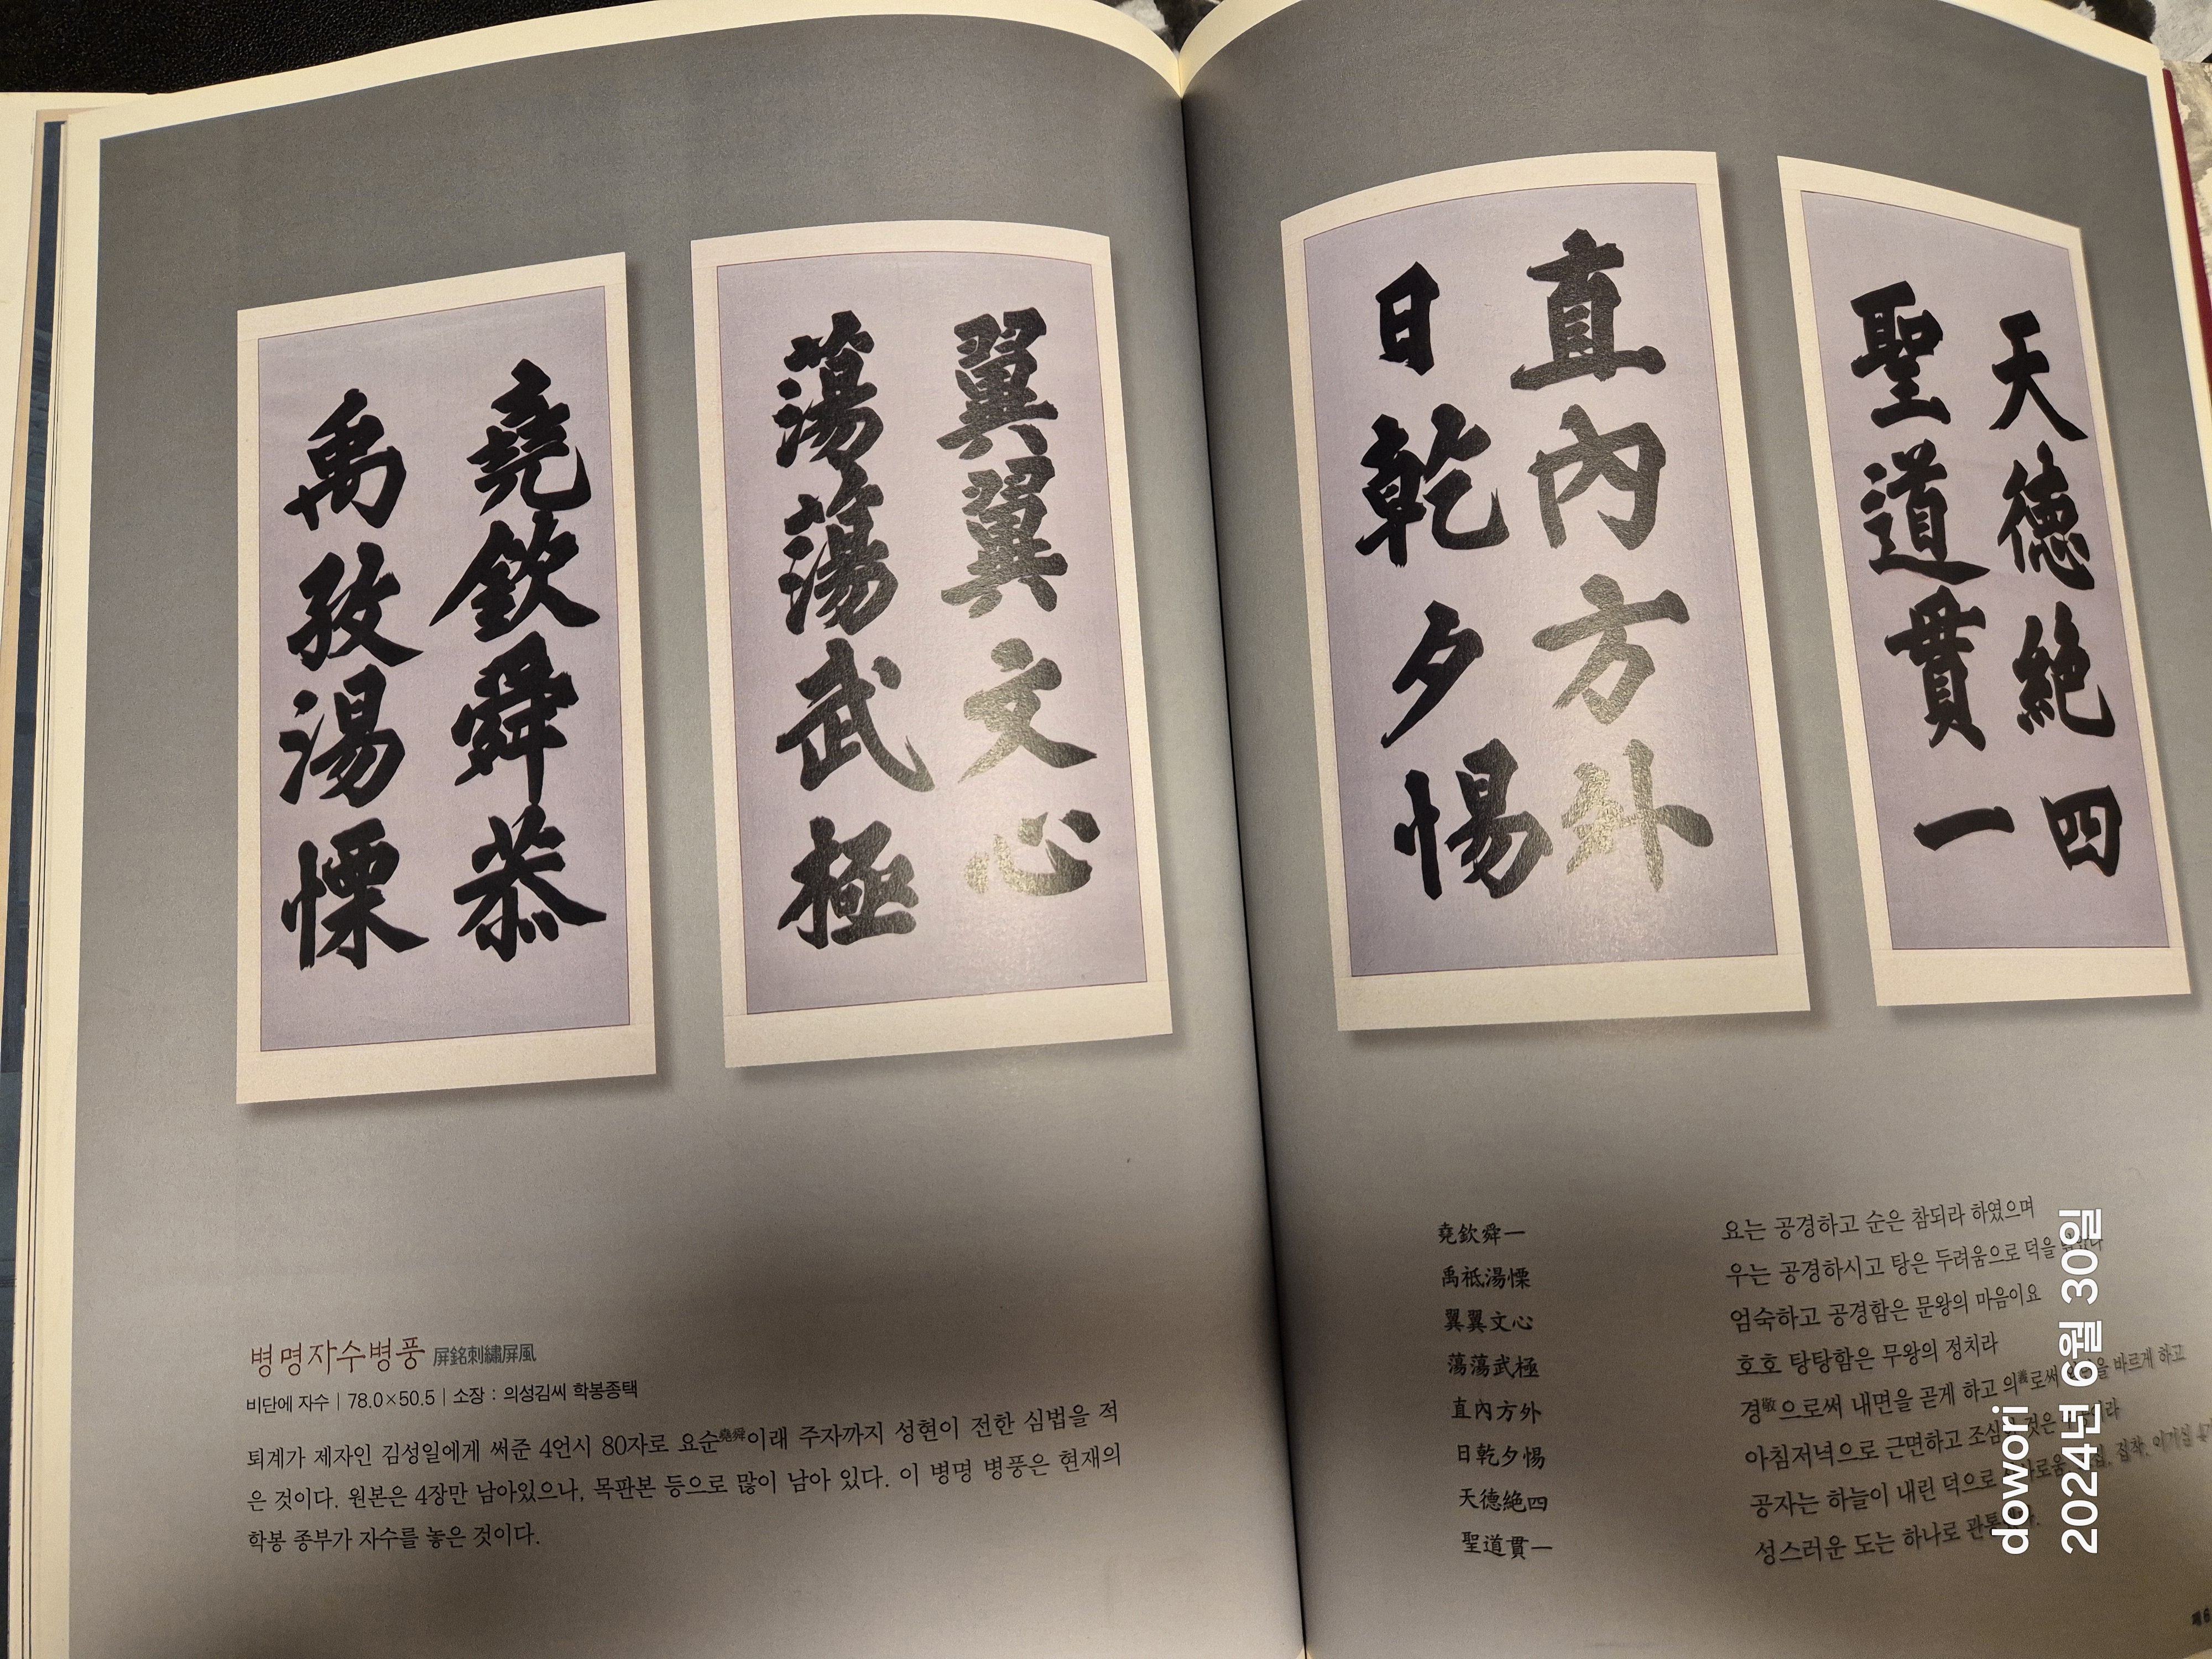 堯欽舜恭
禹孜湯慄
翼翼文心
蕩蕩武極
直內方外
日乾夕惕
天德絕四
聖道貫一
병명자수병풍 屛銘刺繡屛風
비단에 자수 | 78.0×50.5 | 소장 : 의성김씨 학봉종택
퇴계가 제자인 김성일에게 써준 4언시 80자로 요순堯舜이래 주자까지 성현이 전한 심법을 적
은 것이다. 원본은 4장만 남아있으나, 목판본 등으로 많이 남아 있다. 이 병명 병풍은 현재의
학봉 종부가 자수를 놓은 것이다.
堯欽舜一
禹祗湯慄
翼翼文心
蕩蕩武極
直內方外
日乾夕惕
天德絕四
聖道貫一
요는 공경하고 순은 참되라 하였으며
우는 공경하시고 탕은 두려움으로 덕을
엄숙하고 공경함은 문왕의 마음이요
호호 탕탕함은 무왕의 정치라
경敬으로써 내면을 곧게 하고 의義로써 바르게 하고
아침저녁으로 근면하고 것은
공자는 하늘이 내린 덕으로 집착, 이기심
성스러운 도는 하나로
dowori
2024년 6월 30일